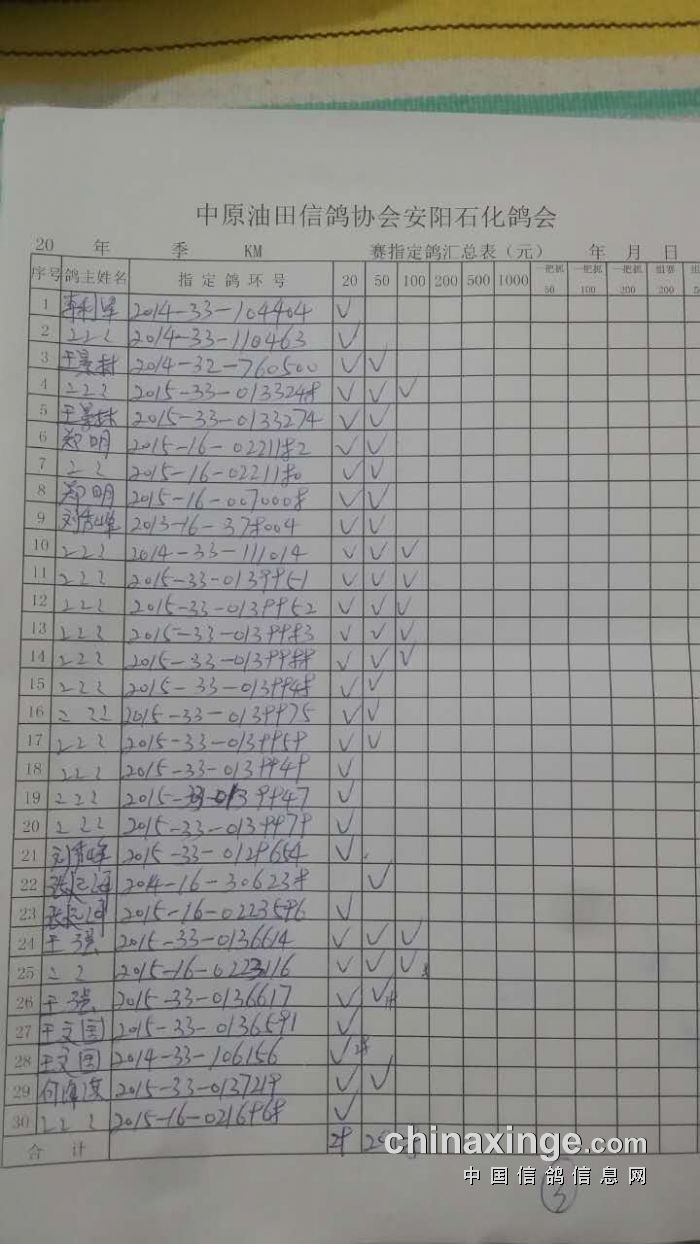 中原油田信鸽协会安阳石化鸽会
20 年 季 KM 赛指定鸽汇总表（元） 年 月 日
序号 鸽主姓名 指定鸽环号 20 50 100 200 500 1000 一把抓50 一把抓100 一把抓200 组赛200
1 2014-33-104404 √
2 〃 2014-33-110463 √
3 2014-32-760500 √ √
4 〃 2015-33-0133248 √ √ √
5 2015-33-0133274 √ √
6 郑明 2015-16-0221182 √ √
7 〃 2015-16-0221180 √ √
8 郑明 2015-16-0070008 √ √
9 2013-16-378004 √ √
10 〃 2014-33-111014 √ √ √
11 〃 2015-33-0139951 √ √ √
12 〃 2015-33-0139952 √ √ √
13 〃 2015-33-0139983 √ √ √
14 〃 2015-33-0139988 √ √ √
15 〃 2015-33-0139948 √ √
16 〃 2015-33-0139975 √ √
17 〃 2015-33-0139959 √ √
18 〃 2015-33-0139949 √
19 〃 2015-33-0139947 √
20 〃 2015-33-0139979 √
21 2015-33-0129654 √
22 2014-16-306238 √
23 2015-16-0223596 √
24 王强 2015-33-0136614 √ √ √
25 〃 2015-16-0223116 √ √ √
26 王强 2015-33-0136617 √ √
27 王文国 2015-33-0136591 √
28 王文国 2014-33-106156 √
29 2015-33-0137219 √ √
30 〃 2015-16-0216968 √
合 计
chinaxinge.com
中国信鸽信息网
3